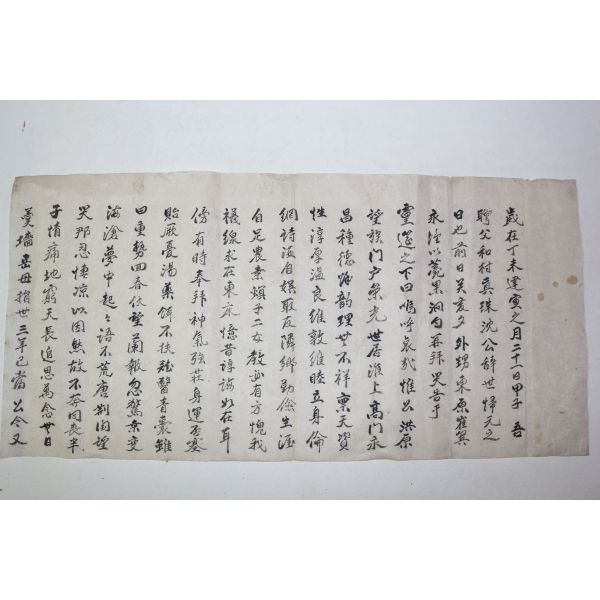 歲在丁未建寅之月二十一日甲子 吾
聘父和村眞珠沈公辭世歸元之
日也前日癸亥夕外甥東原崔
永 以荒果洞 再拜哭告于
靈筵之下曰嗚呼哀哉惟公洪原
望族門戶榮光世居淮上高門永
昌種德 韻理世不祥稟天資
性淳厚溫良維敦維睦立身倫
綱詩酒自娛取友隣鄕勤儉生涯
自足農桑煩子二女敎必有方愧我
襪線求在東床憶昔諄誨如在耳
傍有時奉拜神氣强莊身運否塞
貽厥憂湯藥 不扶 醫靑囊雖
曰重勢回春伏望蘭報忽驚桑變
海滄夢中起起語不荒唐 望
哭那忍悽凉以因 故不奔問喪半
子情痛地窮天長追思萬念廿日
 墻岳母捐世三年已當公今又